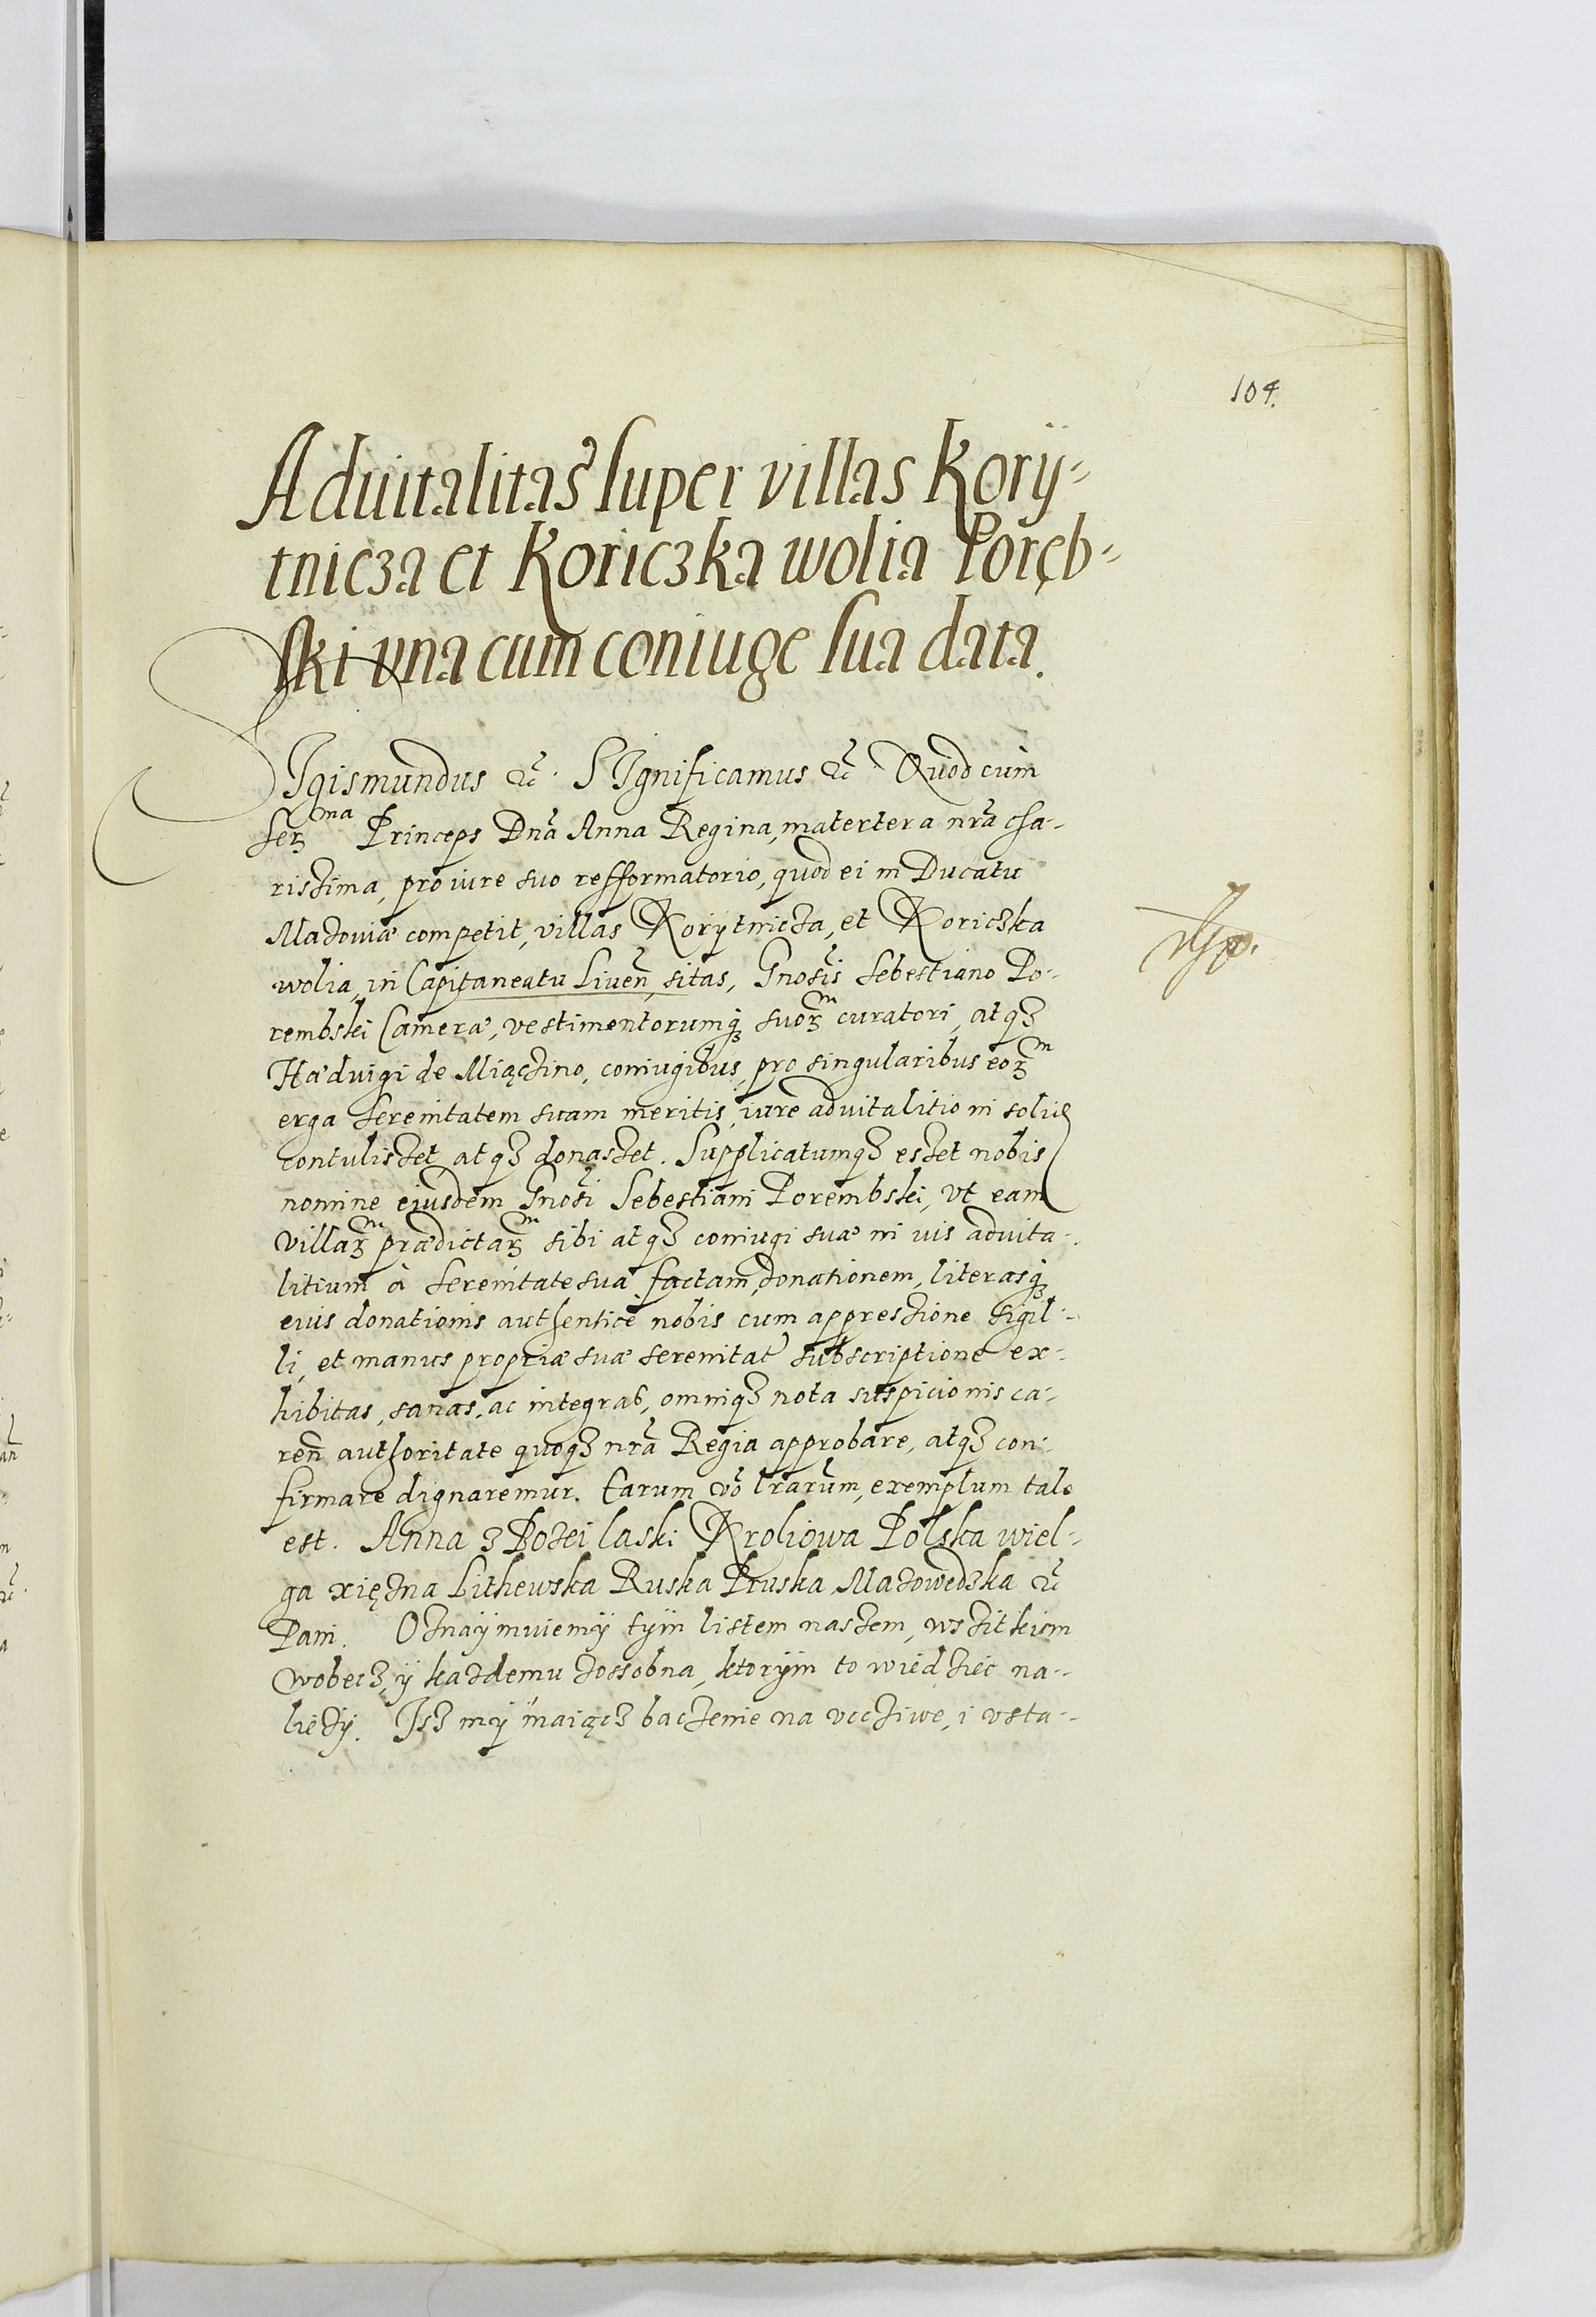 104.
Aduitalitas super villas Korÿ-
tnicza et Koriczka wolia Poręb-
ski vna cum coniuge sua data.
SIgismundus etc̃. SIgnificamus etc̃ Quod cùm
serꝫ ma Princeps Dnã Anna Regina, matertera nrã cha-
rissima, pro iure suo refformatorio, quod ei in Ducatu
Mazouiæ competit, villas Korytnicza, et Koriczka
wolia, in Capitaneatu Liueñ, sitas, Gnosis Sebestiano Po-
rembski Cameræ, vestimentorumq́ꝫ suorꝫ m curatori, atqꝫ
Hæduigi de Miączino, coniugibus, pro singularibus eorꝫ m
erga Serenitatem suam meritis, iure aduitalitio in solid
contulisset, atqꝫ donasset. Supplicatumqꝫ esset nobis
nomine eiusdem Gnosi Sebestiani Porembski, vt eam
villarꝫ m prædictarꝫ m sibi atqꝫ coniugi suæ in uis aduita-
litium à Serenitate sua factam, donationem, literasq́ꝫ
eius donationis authenticè nobis cum appressione sigil-
li, et manus propriæ suæ serenitat subscriptione ex-
hibitas, sanas, ac integras, omniqꝫ nota suspicionis ca-
reñ authoritate quoqꝫ nrã Regia approbare, atqꝫ con-
firmare dignaremur. Earum võ lrarum, exemplum tale
est. Anna z Bozei laski Kroliowa Polska wiel-
ga xiężna Lithewska Ruska Pruska, Mazowedzka etc̃
Pani. Oznaÿmuiemÿ tÿm listem naszem, wszitkiem
wobecz, ÿ kazdemu zossobna, ktorÿm to wiedziéc na-
liezÿ. Isz mÿ maiącz baczenie na vccziwe, i vsta-